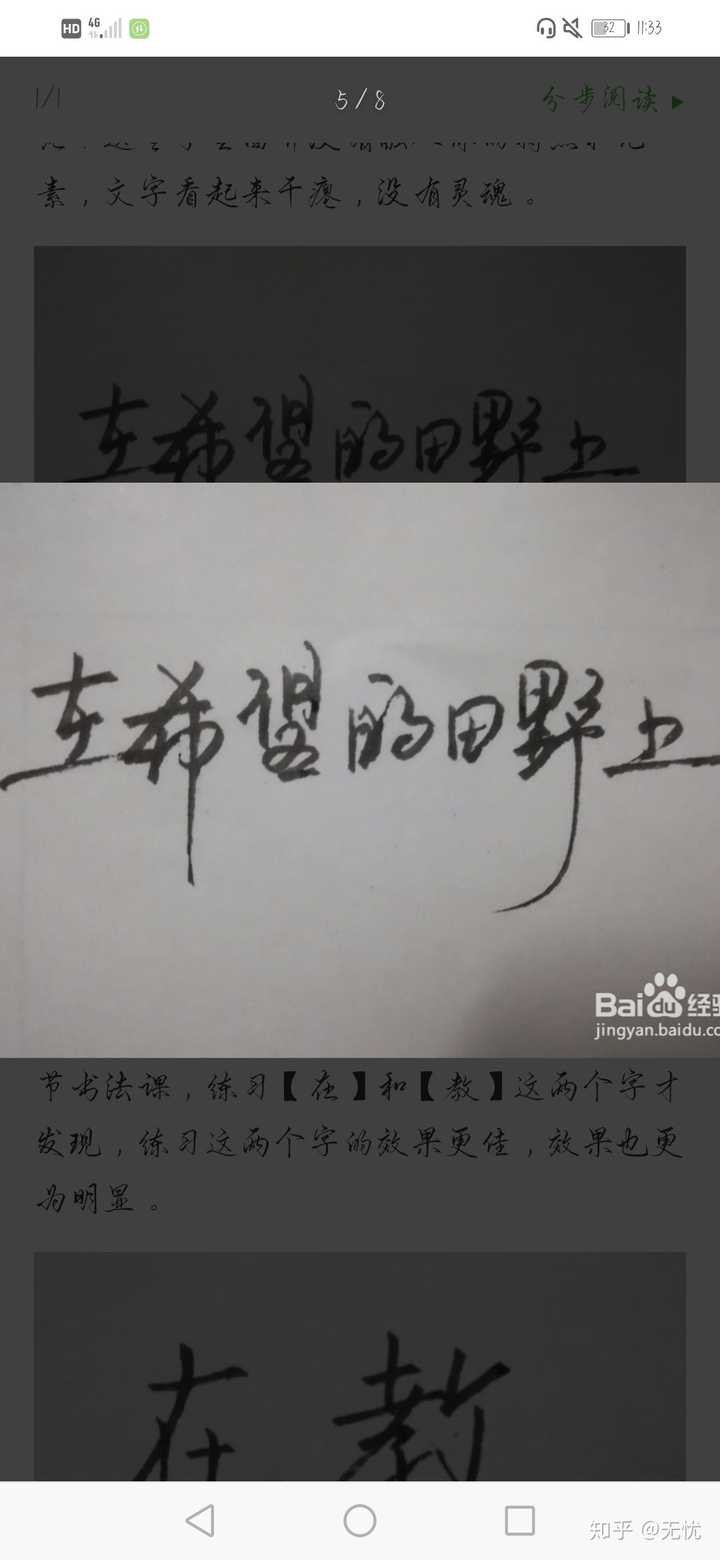 HD 4G 32 11:33
1/1 5/8 分步阅读
素，文字看起来干瘪，没有灵魂。
在希望的田野上
在希望的田野上
Bai du 经验
jingyan.baidu.co
节书法课，练习【在】和【教】这两个字才
发现，练习这两个字的效果更佳，效果也更
为明显。
在 教
知乎 @无忧